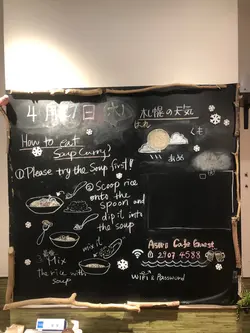 4月 7日 (火)
札幌の天気
はれ
くも
あめ
How to eat
Soup Curry
① Please try the Soup first!!
② Scoop rice
onto the
spoon and
dip it into
the soup
mix it
③ Mix
the rice with
soup
Asari Cafe Guest
2907 4588
WiFi & Password